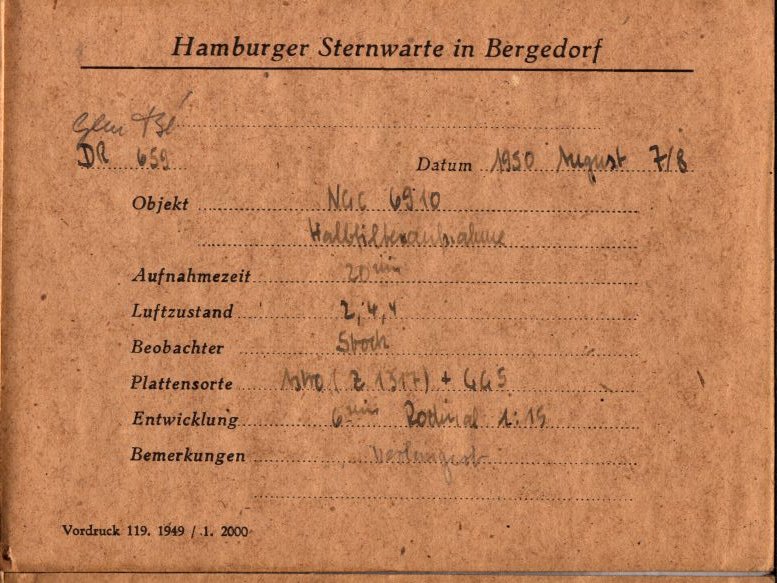 Hamburger Sternwarte in Bergedorf
DR 659
Datum 1950 August 7/8
Objekt NGC 6910
Halbfilteraufnahme
Aufnahmezeit 20 min
Luftzustand 2, 4, 4
Beobachter Stock
Plattensorte Astro (Z 1317) + GG5
Entwicklung 6 min Rodinal 1:15
Bemerkungen
Vordruck 119. 1949 / .1. 2000